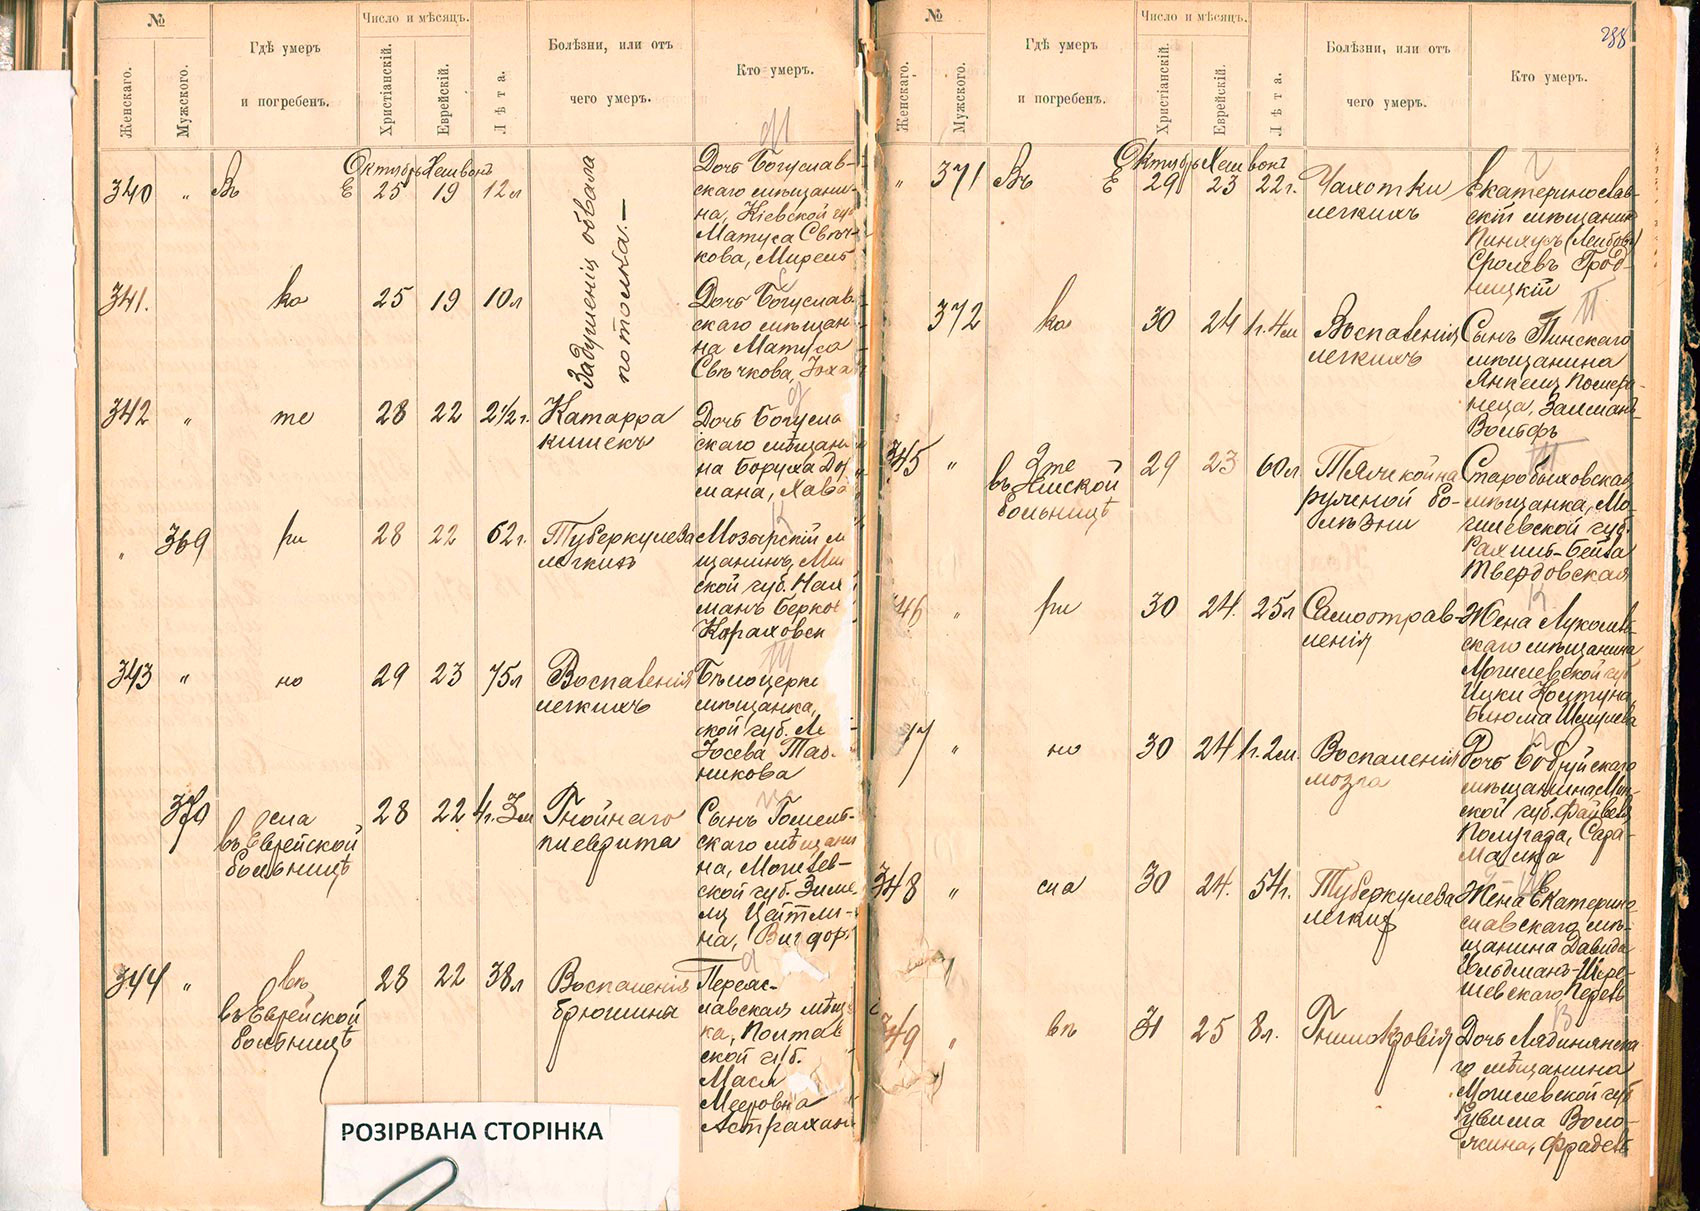 №
Число и мѣсяцъ.
Женскаго.
Мужскаго.
Гдѣ умеръ
и погребенъ.
Христіанскій.
Еврейскій.
Лѣта.
Болѣзни, или отъ
чего умеръ.
Кто умеръ.
Октябрь Хешвонъ
340 „ Въ Е 25 19 12 л
Задушеніи обвала
потолка. —
Дочь Богуслав-
скаго мѣщани-
на, Кіевской губ
Матуса Свѣч-
кова, Мирель
341. ка 25 19 10 л
Дочь Богуслав-
скаго мѣщан
на Матуса
Свѣчкова, Юха
342 „ те 28 22 2 1/2 г.
Катарра
кишекъ
Дочь Богусла
скаго мѣщани
на Боруха
мана, Хава
„ 369 ри 28 22 62 г.
Туберкулеза
легкихъ
Мозырскій м
щанинъ, Ми
ской губ. Нах
манъ Берков
Караховск
343 „ но 29 23 75 л
Воспаленія
легкихъ
Бѣлоцерк
мѣщанка,
ской губ.
Іосева Таб-
никова
370 сла 28 22 4 г. 3 м
въ Еврейской
больницѣ
Гнойнаго
плеврита
Сынъ Гомель-
скаго мѣщани
на, Могилев-
ской губ.
Цейтли-
на, Вигдоръ
344 „ въ 28 22 38 л
въ Еврейской
больницѣ
Воспаленія
брюшина
Переяс-
лавская мѣщ
ка, Полтав
ской губ.
Мася
Мееровна
Астрахан
РОЗІРВАНА СТОРІНКА
288
№
Число и мѣсяцъ.
Женскаго.
Мужскаго.
Гдѣ умеръ
и погребенъ.
Христіанскій.
Еврейскій.
Лѣта.
Болѣзни, или отъ
чего умеръ.
Кто умеръ.
Октябрь Хешвонъ
„ 371 Въ Е 29 23 22 г.
Чахотки
легкихъ
Екатеринослав-
скій мѣщанинъ
Пинхусъ (Лейбовъ)
Сролевъ Грод-
ницкій
372 ка 30 24 1 г. 4 м
Воспаленія
легкихъ
Сынъ Пинскаго
мѣщанина
Янкеля Помера-
неца, Залманъ
Вольфъ
345 „ те 29 23 60 л
въ Земской
больницѣ
Тяжкой на
ружной бо-
лѣзни
Старобыховская
мѣщанка, Мо-
гилевской губ.
Рахиль-Бейла
Твердовская
346 „ ри 30 24. 25 л
Самоотрав-
ленія
Жена Лукомль-
скаго мѣщанина
Могилевской губ
Ицки Колтуна,
Блюма Шмулева
47 „ но 30 24 1 г. 2 м.
Воспаленія
мозга
Дочь Бобруйскаго
мѣщанина Мин-
ской губ. Файвеля
Полугада, Сара-
Малка
348 „ сла 30 24. 54 г.
Туберкулеза
легкихъ
Жена Екатерино-
славскаго мѣ-
щанина Давида
Шере-
шевскаго Перель
349 „ въ 31 25 8 л.
Гнилокровія
Дочь Лядинянска
го мѣщанина
Могилевской губ
Рувима Воло-
жина, Фрадель